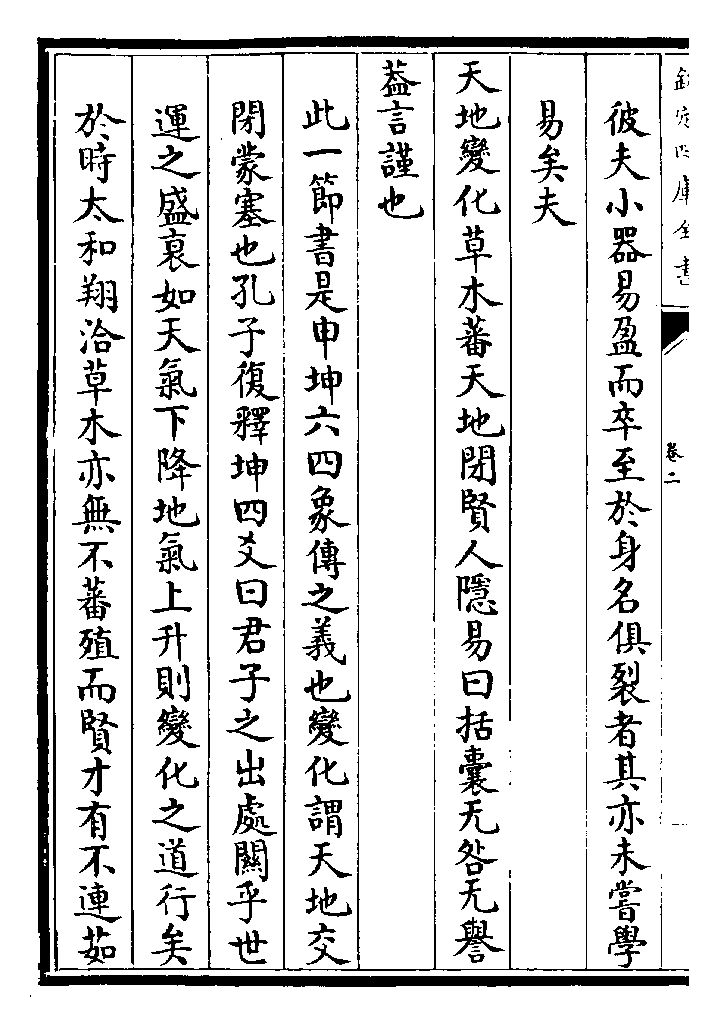 欽定四庫全書
卷二
彼夫小器易盈而卒至於身名俱裂者其亦未嘗學
易矣夫
天地變化草木蕃天地閉賢人隱易曰括囊无咎无譽
葢言謹也
此一節書是申坤六四象傳之義也變化謂天地交
閉蒙塞也孔子復釋坤四爻曰君子之出處關乎世
運之盛衰如天氣下降地氣上升則變化之道行矣
於時太和翔洽草木亦無不蕃殖而賢才有不連茹